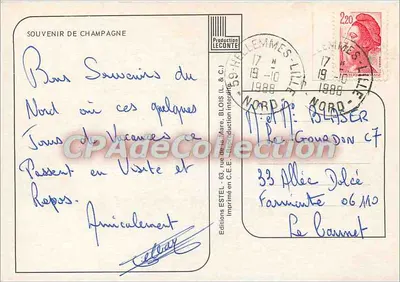 SOUVENIR DE CHAMPAGNE
Bons Souvenirs du
Nord où ces quelques
Jours de Vacances ce
Passent en Visite et
Repos.
Amicalement
Production
LECONTE
Editions ESTEL - 63, rue de la Mare, BLOIS (L. & C.)
Imprimé en C.E.E. - Reproduction interdite
59 HELLEMMES-LILLE
17 H
19-10
1988
NORD
59 HELLEMMES-LILLE
17 H
19-10
1988
NORD
2,20
M et Me BLASER
Le Gourdon C7
33 Allée Dolcé
Farniente 06110
Le Cannet
CPADeCollection